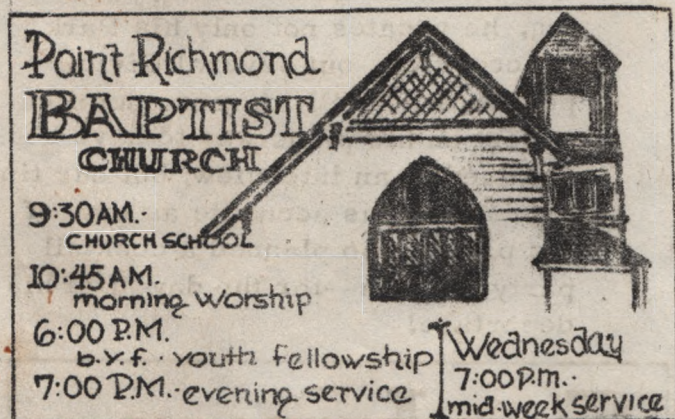 Point Richmond
BAPTIST
CHURCH
9:30 A.M.·
CHURCH SCHOOL
10:45 A.M.
morning worship
6:00 P.M.
b.y.f. · youth fellowship
7:00 P.M. · evening service
Wednesday
7:00 P.m. ·
mid-week service